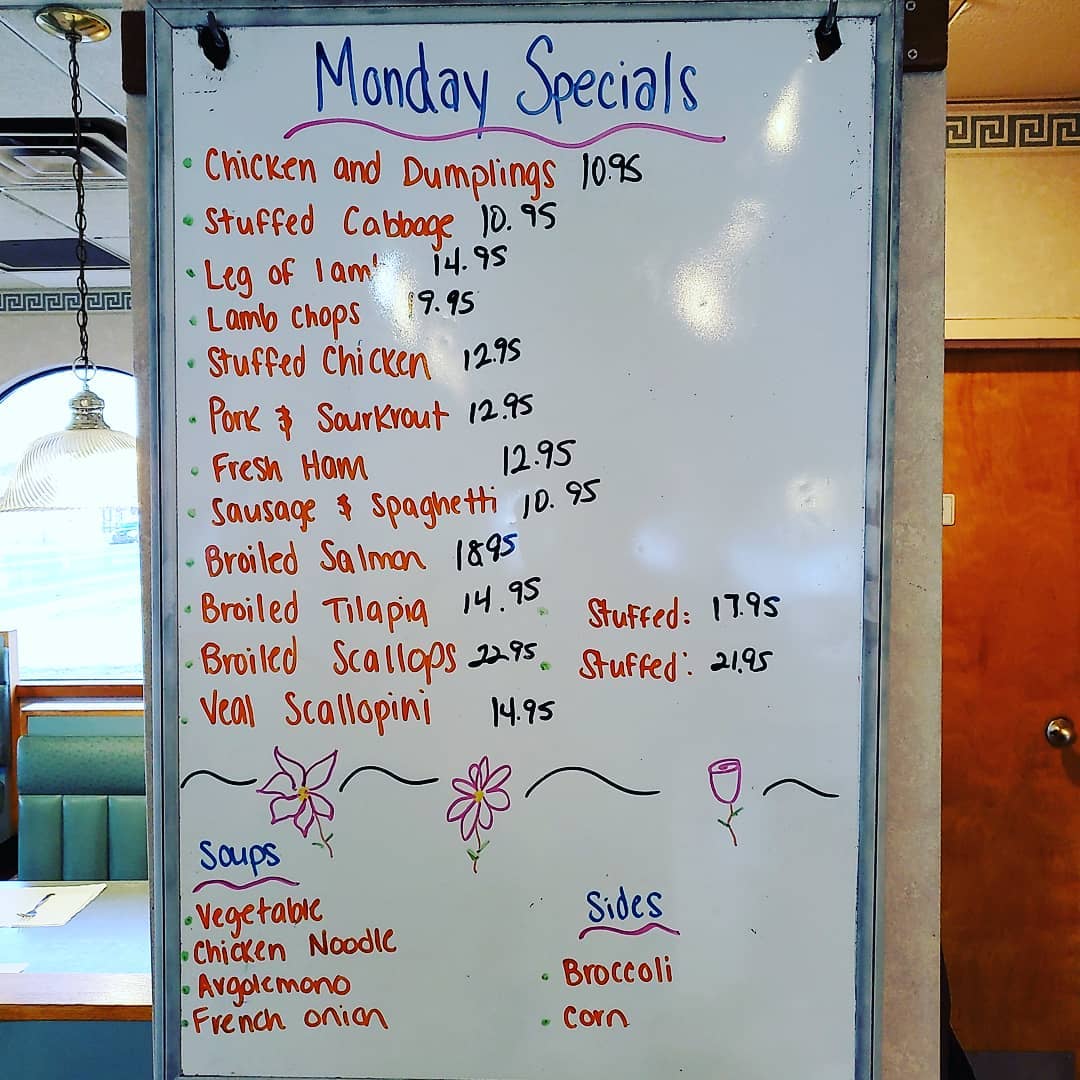 Monday Specials
Chicken and Dumplings 10.95
Stuffed Cabbage 10.95
Leg of lamb 14.95
Lamb chops 9.95
Stuffed Chicken 12.95
Pork & Sourkrout 12.95
Fresh Ham 12.95
Sausage & Spaghetti 10.95
Broiled Salmon 18.95
Broiled Tilapia 14.95 Stuffed: 17.95
Broiled Scallops 22.95 Stuffed: 21.95
Veal Scallopini 14.95
Soups
Vegetable
Chicken Noodle
Avgolemono
French onion
Sides
Broccoli
Corn